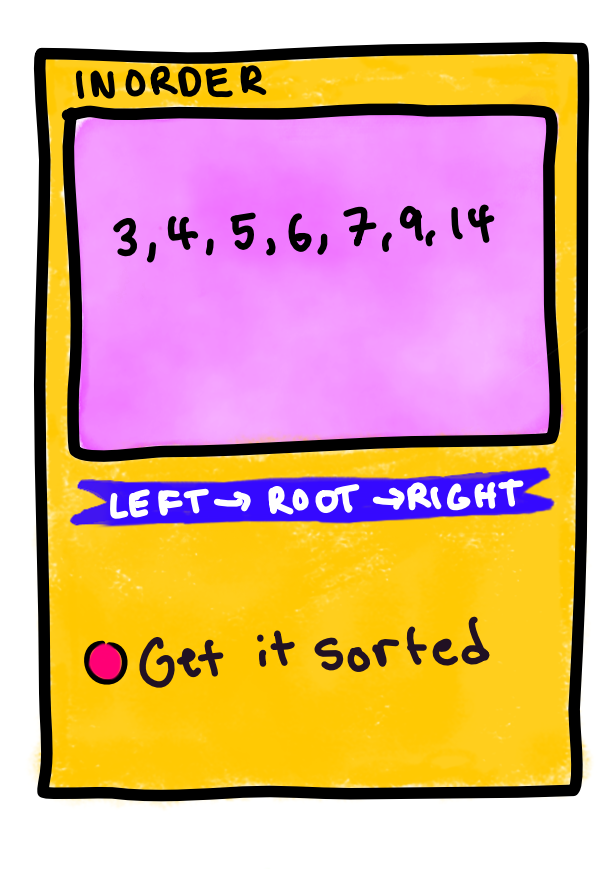 INORDER
3, 4, 5, 6, 7, 9, 14
LEFT → ROOT → RIGHT
Get it sorted